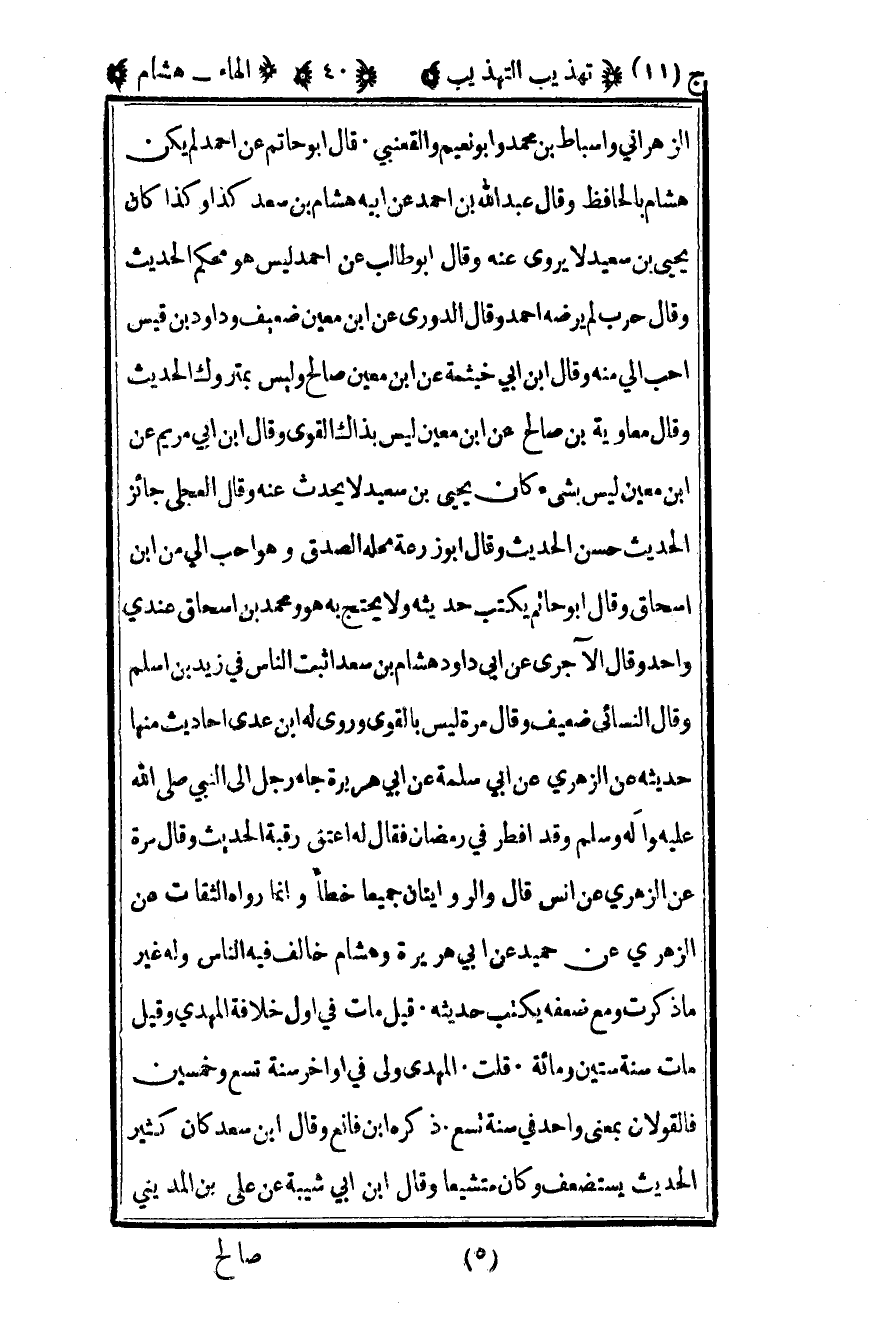 ج (١١) ﴿ تهذيب التهذيب ﴾ ﴿ ٤٠ ﴾ ﴿ الهاء ـ هشام ﴾
الزهراني واسباط بن محمد وابو نعيم والقعنبي · قال ابو حاتم عن احمد لم يكن
هشام بالحافظ وقال عبد الله بن احمد عن ابيه هشام بن سعد كذا وكذا كان
يحيى بن سعيد لا يروى عنه وقال ابو طالب عن احمد ليس هو محكم الحديث
وقال حرب لم يرضه احمد وقال الدورى عن ابن معين ضعيف وداود بن قيس
احب الي منه وقال ابن ابي خيثمة عن ابن معين صالح وليس بمتروك الحديث
وقال معاوية بن صالح عن ابن معين ليس بذاك القوى وقال ابن ابي مريم عن
ابن معين ليس بشىء كان يحيى بن سعيد لا يحدث عنه وقال العجلى جائز
الحديث حسن الحديث وقال ابو زرعة محله الصدق و هو احب الي من ابن
اسحاق وقال ابو حاتم يكتب حديثه ولا يحتج به هو ومحمد بن اسحاق عندي
واحد وقال الآجرى عن ابي داود هشام بن سعد اثبت الناس في زيد بن اسلم
وقال النسائى ضعيف وقال مرة ليس بالقوى وروى له ابن عدى احاديث منها
حديثه عن الزهري عن ابي سلمة عن ابي هريرة جاء رجل الى النبي صلى الله
عليه وآله وسلم وقد افطر في رمضان فقال له اعتق رقبة الحديث وقال مرة
عن الزهري عن انس قال والروايتان جميعا خطأ و انما رواه الثقات عن
الزهري عن حميد عن ابي هريرة وهشام خالف فيه الناس وله غير
ما ذكرت ومع ضعفه يكتب حديثه · قيل مات في اول خلافة المهدي وقيل
مات سنة ستين ومائة · قلت · المهدى ولى في اواخر سنة تسع وخمسين
فالقولان بمعنى واحد في سنة تسع · ذكره ابن قانع وقال ابن سعد كان كثير
الحديث يستضعف وكان متشيعا وقال ابن ابي شيبة عن على بن المديني
(٥) صالح